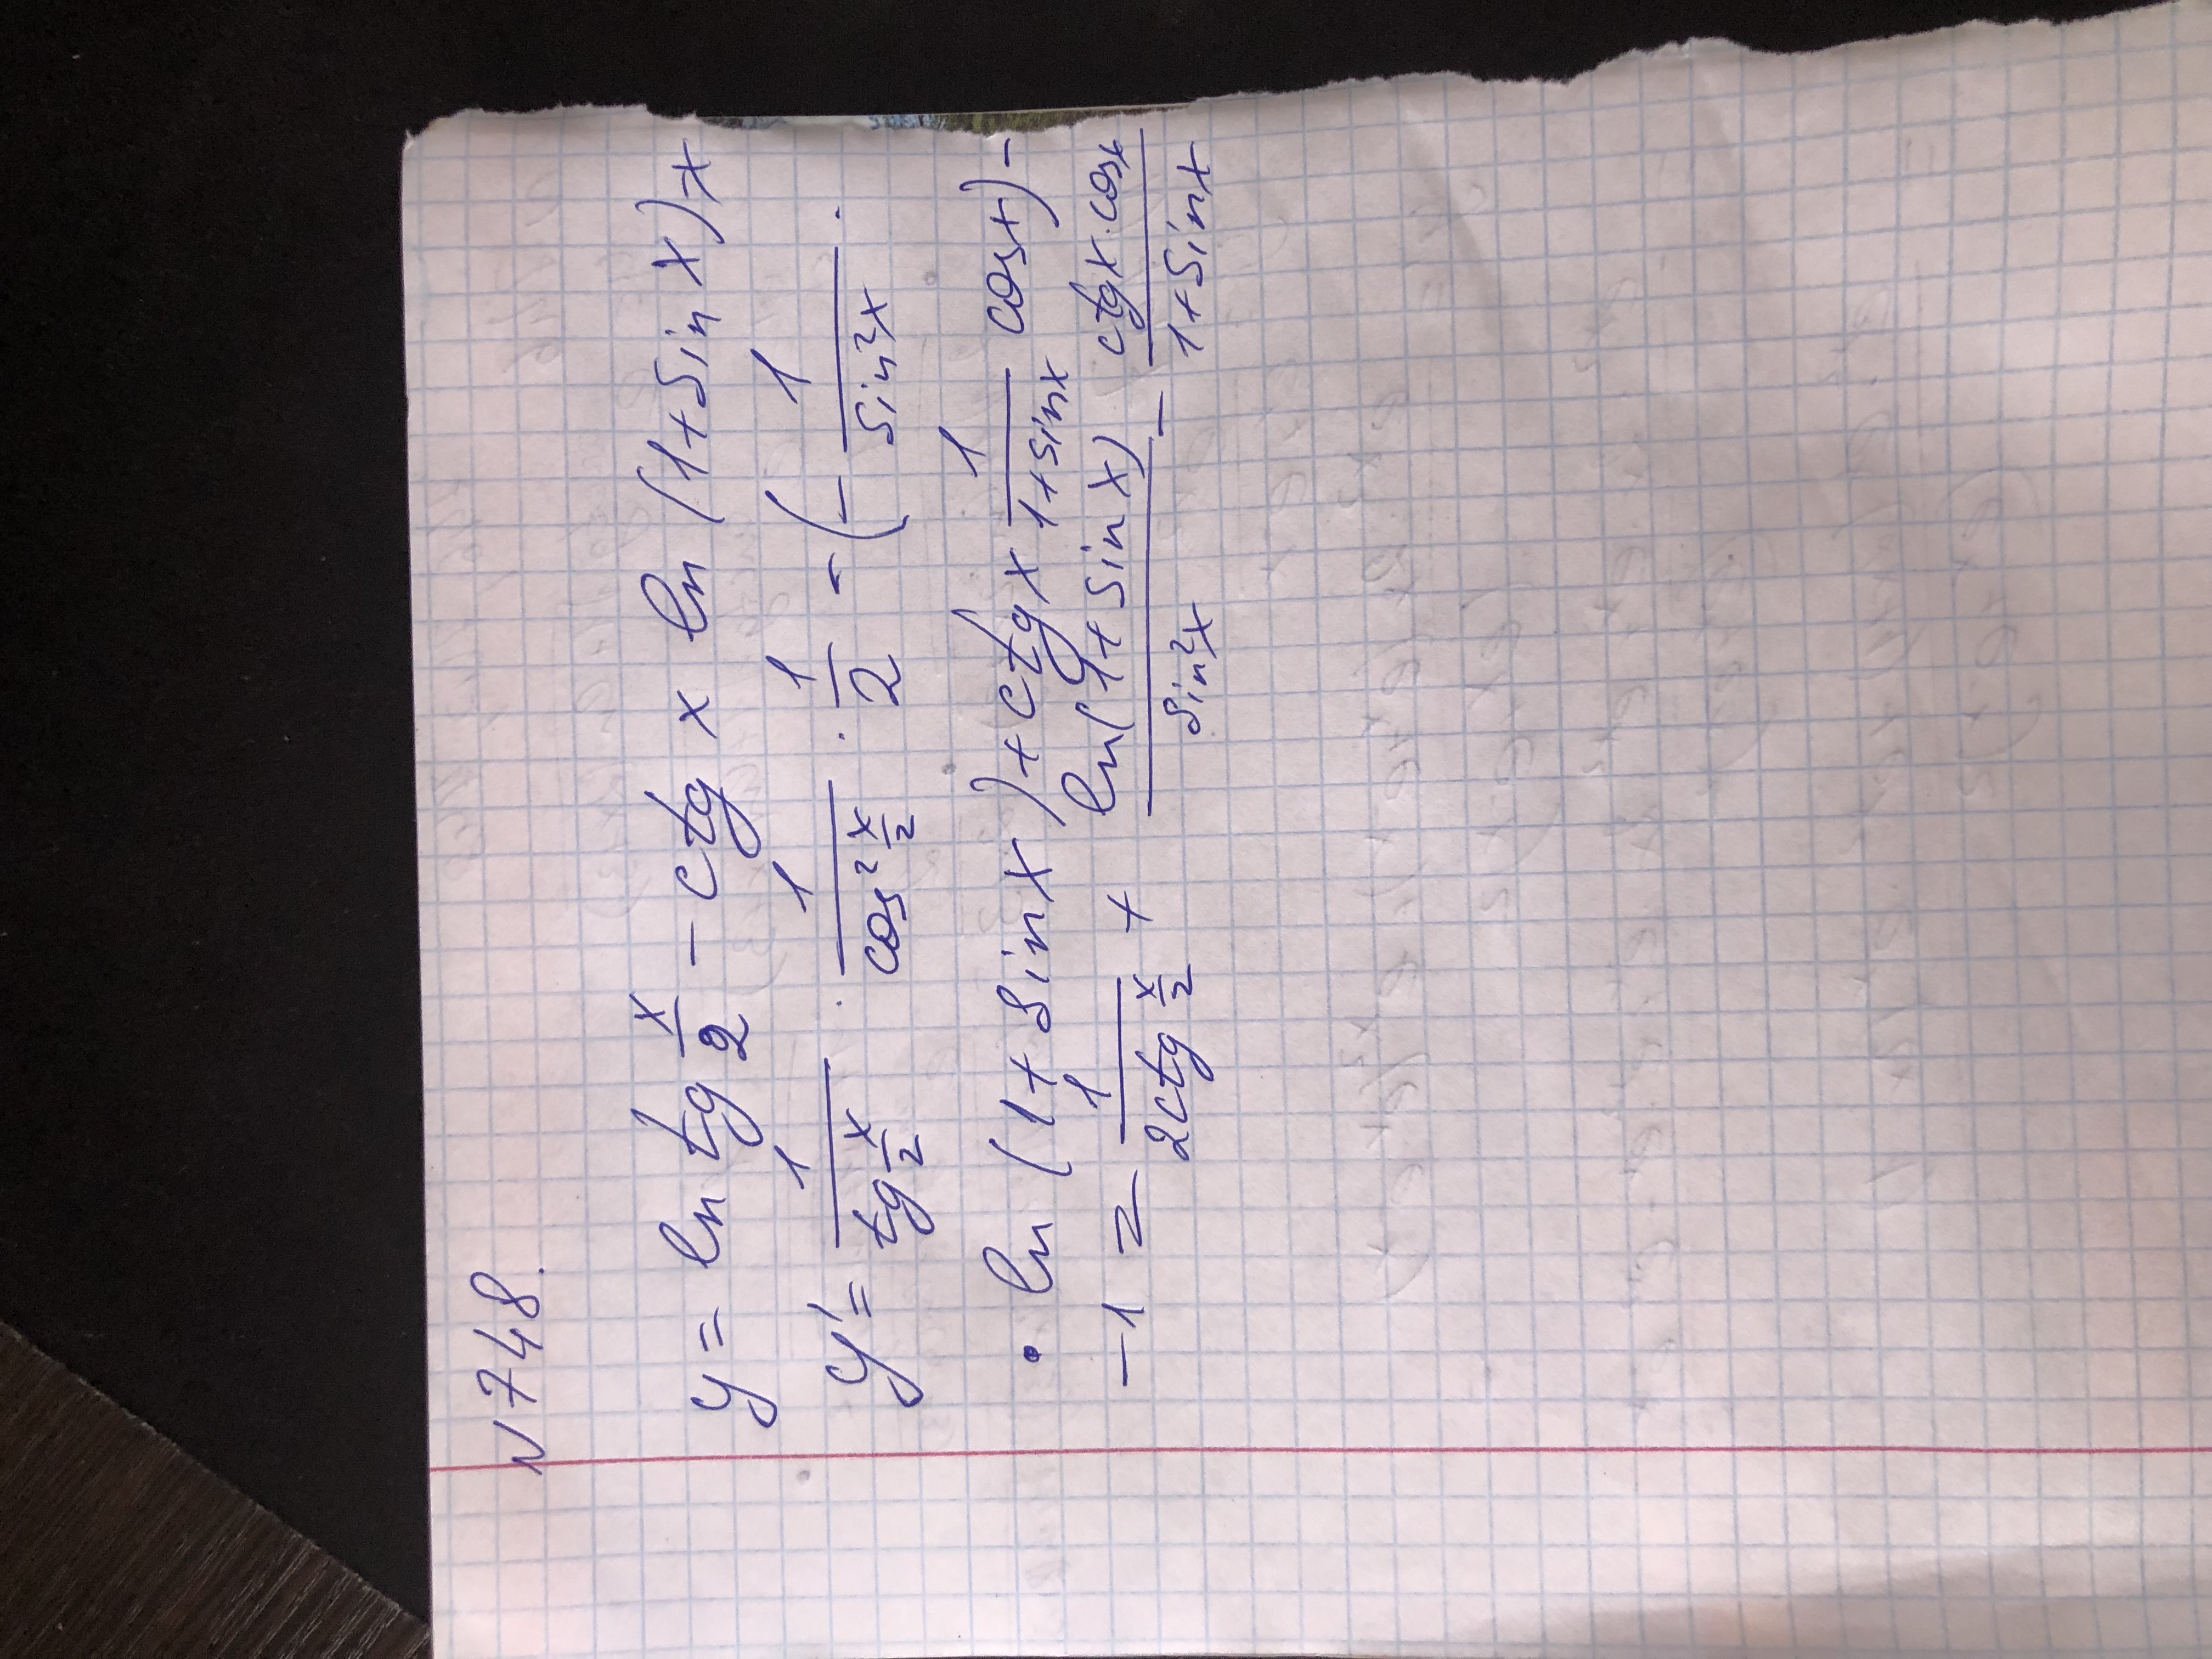 N748.
y = ln tg x/2 - ctg x ln (1+sin x) - x
y' = 1/(tg x/2) · 1/(cos² x/2) · 1/2 - (- 1/(sin²x) ·
· ln (1+sin x) + ctg x 1/(1+sinx) cosx) -
-1 = 1/(2ctg x/2) + ln(1+sin x)/(sin²x) - (ctgx·cosx)/(1+sinx)